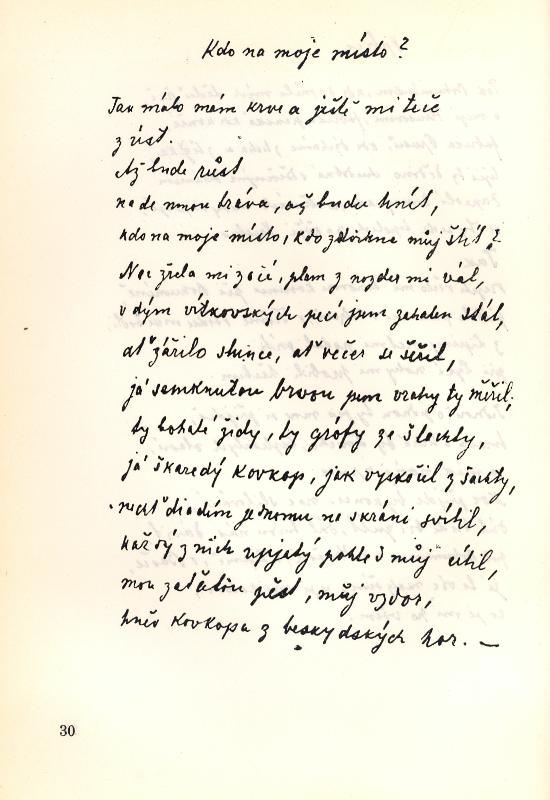 Kdo na moje místo?
Tak málo mám krve a ještě mi teče
z úst.
Až bude růst
nade mnou tráva, až budu hnít,
kdo na moje místo, kdo zdvihne můj štít?
Noc zřela mi z očí, plam z nozder mi vál,
v dým vítkovských pecí jsem zahalen stál,
ať zářilo slunce, ať večer se šeřil,
já semknutou brvou jsem vrahy ty měřil;
ty bohaté židy, ty grófy ze šlachty,
já škaredý kovkop, jak vyskočil z šachty,
nechť diadém jednomu na skráni svítil,
každý z nich upjatý pohled můj cítil,
mou zaťatou pěst, můj vzdor,
hněv kovkopa z beskydských hor. —
30